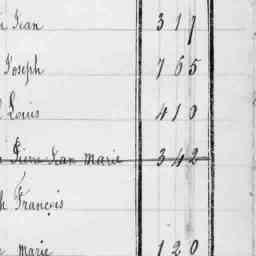 Jean 317
Joseph 765
Louis 410
Pierre Jean Marie 342
h François
marie 120